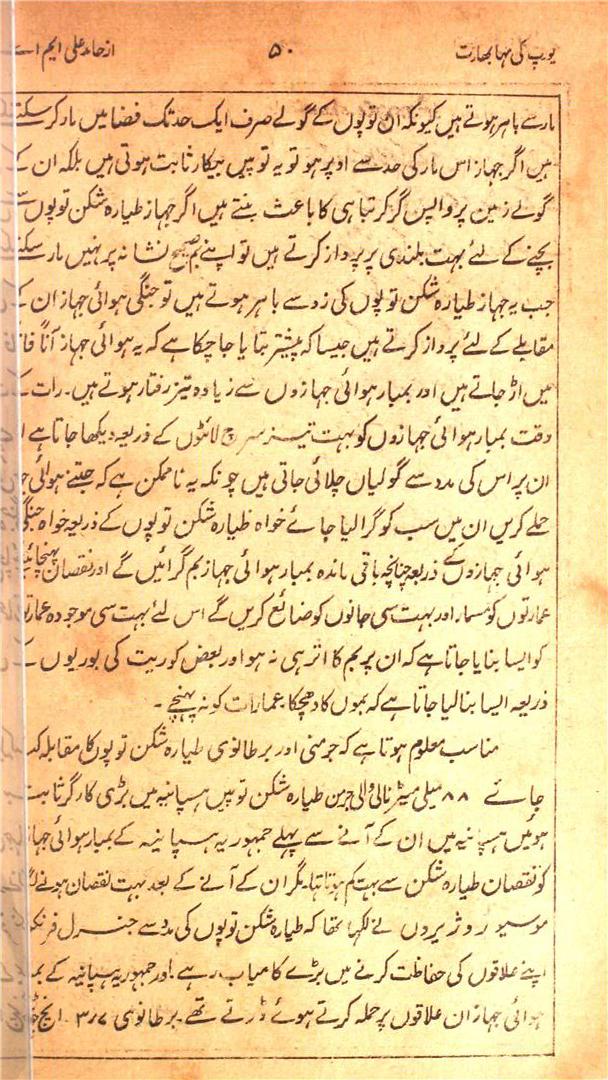 یورپ کی مہا بھارت ۵۰ از حامد علی ایم اے
مار سے باہر ہوتے ہیں کیونکہ ان توپوں کے گولے صرف ایک حد تک فضا میں مار کر سکتے
ہیں اگر جہاز اس مار کی حد سے اوپر ہو تو یہ توپیں بیکار ثابت ہوتی ہیں بلکہ ان کے
گولے زمین پر واپس گر کر تباہی کا باعث بنتے ہیں اگر جہاز طیارہ شکن توپوں سے
بچنے کے لئے بہت بلندی پر پرواز کرتے ہیں تو اپنے بم صحیح نشانہ پر نہیں مار سکتے
جب یہ جہاز طیارہ شکن توپوں کی زد سے باہر ہوتے ہیں تو جنگی ہوائی جہاز ان کے
مقابلے کے لئے پرواز کرتے ہیں جیسا کہ پیشتر بتایا جا چکا ہے کہ یہ ہوائی جہاز آناً فاناً
میں اڑ جاتے ہیں اور بمبار ہوائی جہازوں سے زیادہ تیز رفتار ہوتے ہیں۔ رات کے
وقت بمبار ہوائی جہازوں کو بہت تیز سرچ لائٹوں کے ذریعہ دیکھا جاتا ہے
ان پر اس کی مدد سے گولیاں چلائی جاتی ہیں چونکہ یہ ناممکن ہے کہ جتنے ہوائی
حملے کریں ان میں سب کو گرا لیا جائے خواہ طیارہ شکن توپوں کے ذریعہ خواہ جنگی
ہوائی جہازوں کے ذریعہ چنانچہ باقی ماندہ بمبار ہوائی جہاز بم گرائیں گے اور نقصان پہنچائیں
عمارتوں کو مسمار اور بہت سی جانوں کو ضائع کریں گے اس لئے بہت سی موجودہ
کو ایسا بنایا جاتا ہے کہ ان پر بم کا اثر ہی نہ ہو اور بعض کو ریت کی بوریوں کے
ذریعہ ایسا بنا لیا جاتا ہے کہ بموں کا دھچکا عمارات کو نہ پہنچے ۔
مناسب معلوم ہوتا ہے کہ جرمنی اور برطانوی طیارہ شکن توپوں کا مقابلہ کیا
جائے ۸۸ ملی میٹر نالی والی جرمن طیارہ شکن توپیں ہسپانیہ میں بڑی کارگر ثابت
ہوئیں ہسپانیہ میں ان کے آنے سے پہلے جمہوریہ ہسپانیہ کے بمبار ہوائی
کو نقصان طیارہ شکن سے بہت کم ہوتا تھا۔ مگر ان کے آنے کے بعد بہت نقصان ہونے
موسیو روژیروں نے لکھا تھا کہ طیارہ شکن توپوں کی مدد سے جنرل
اپنے علاقوں کی حفاظت کرنے میں بڑے کامیاب رہے۔ اور جمہوریہ ہسپانیہ کے
ہوائی جہاز ان علاقوں پر حملہ کرتے ہوئے ڈرتے تھے۔ برطانوی ۳٫۷ انچ